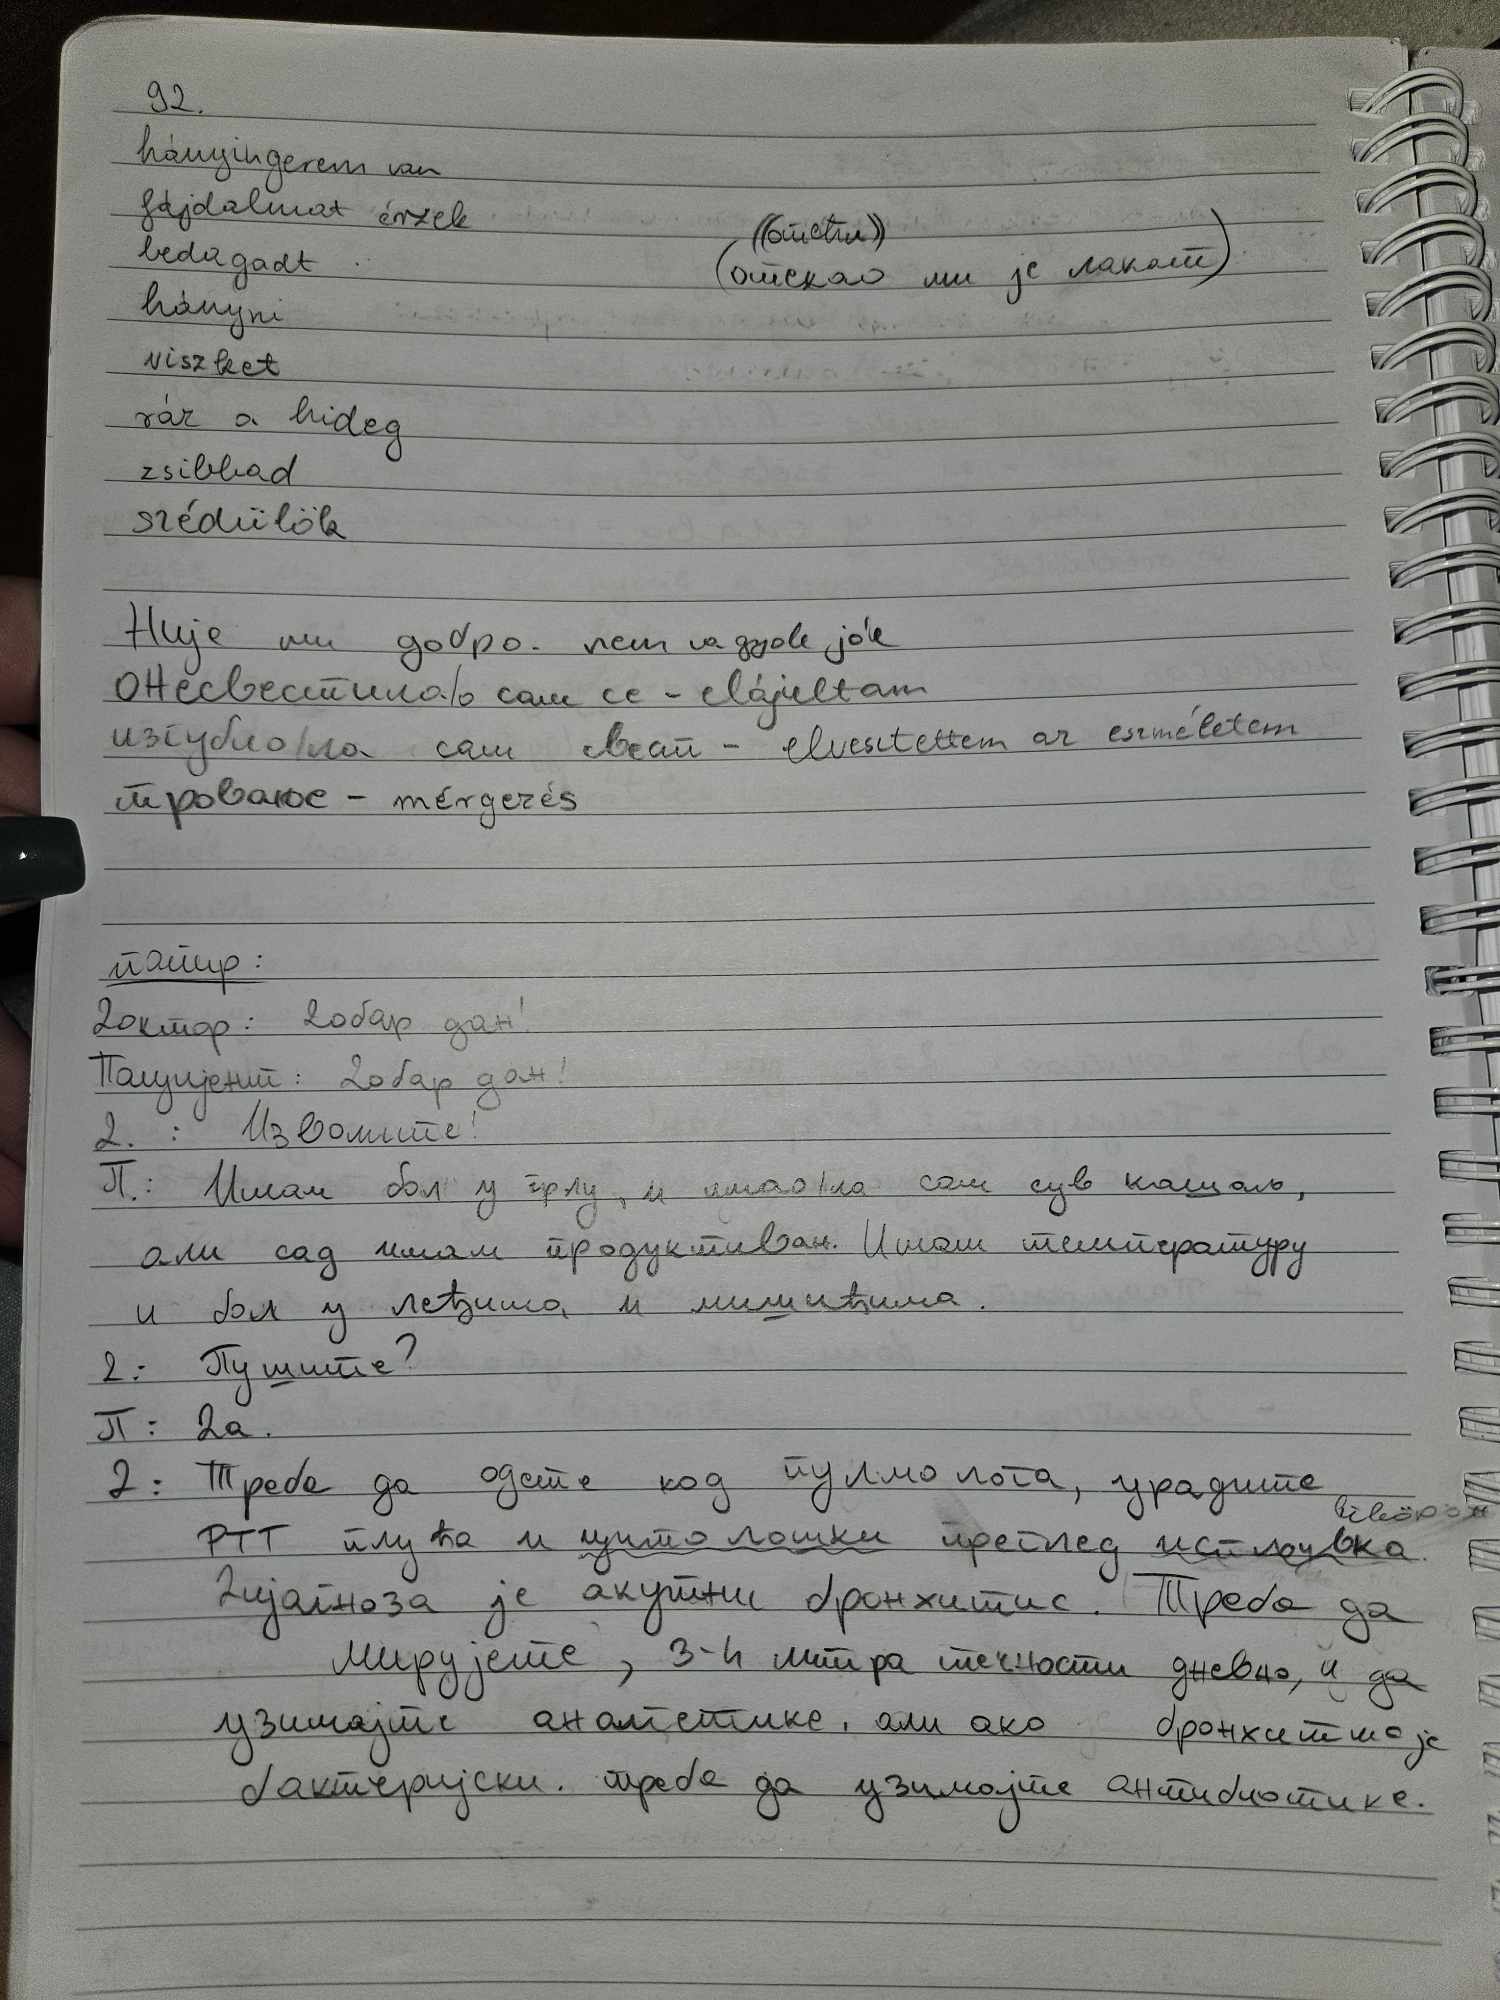 92.
hányingerem van
fájdalmat érzek
((отећи))
bedagadt
(отекао ми је лакат)
hányni
viszket
ráz a hideg
zsibbad
szédülök
Није ми добро. nem vagyok jól
Онесвестила/о сам се - elájultam
изгубио/ла сам свест - elvesztettem az eszméletem
тровање - mérgezés
папир:
Доктор: Добар дан!
Пацијент: Добар дан!
Д. : Изволите!
П.: Имам бол у грлу, и имао/ла сам сув кашаљ,
али сад имам продуктиван. Имам температуру
и бол у леђима и мишићима.
Д: Пушите?
П: Да.
Д: Треба да одете код пулмолога, урадите
РТГ плућа и цитолошки преглед испљувка.
Дијагноза је акутни бронхитис. Треба да
мирујете, 3-4 литра течности дневно, и да
узимајте аналгетике, али ако бронхитис је
бактеријски. треба да узимајте антибиотике.